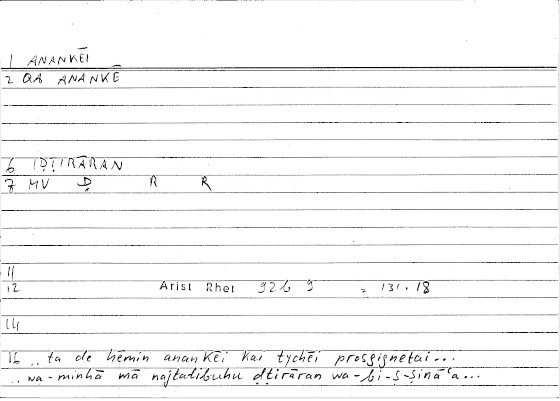 1 ANANKĒI
2 QA ANANKĒ
6 IḌṬIRĀRAN
7 MV Ḍ R R
11
12 Arist Rhet 92b 9 = 131.18
14
16 ..ta de hēmin anankēi kai tychēi prosgignetai...
..wa-minhā mā najtalibuhu ḍṭirāran wa-bi-ṣ-ṣināʿa...